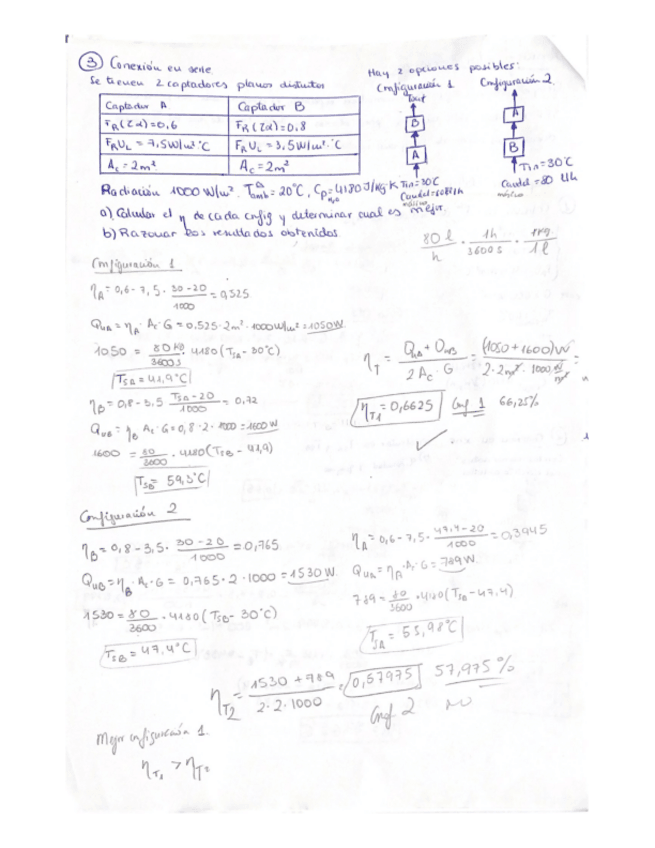 3 Conexión en serie.
Se tienen 2 captadores planos distintos
Captador A | Captador B
FR(τα)=0,6 | FR(τα)=0,8
FRUL = 7,5W/m²·°C | FRUL = 3,5W/m²·°C
Ac=2m² | Ac=2m²
Hay 2 opciones posibles:
Configuración 1 Configuración 2
Tout
B A
A B
Tin=30°C Tin=30°C
Caudal=80 l/h
másico
Caudal=80 l/h
másico
Radiación 1000 W/m². Tamb=20°C, Cp=4180J/kg·K
a) Calcular el η de cada config y determinar cual es mejor.
b) Razonar los resultados obtenidos.
80 l/h · 1h/3600s · 1kg/1l
Configuración 1
ηA=0,6-7,5·(30-20)/1000=0,525
QuA=ηA·Ac·G=0,525·2m²·1000W/m²=1050W
1050 = 80 kg/3600s · 4180(TSA-30°C)
TSA=41,9°C
ηB=0,8-3,5 (TSA-20)/1000=0,72
QuB=ηB·Ac·G=0,8·2·1000=1600W
1600 = 80/3600 · 4180(TSB-41,9)
TSB=59,3°C
ηT = (QuA+QuB)/(2Ac·G) = (1050+1600)W/(2·2m²·1000 W/m²) =
ηT1=0,6625 Conf 1 66,25%
Configuración 2
ηB=0,8-3,5·(30-20)/1000=0,765
QuB=ηB·Ac·G=0,765·2·1000=1530W.
1530=80/3600·4180(TSB-30°C)
TSB=47,4°C
ηA=0,6-7,5·(47,4-20)/1000=0,3945
QuA=ηA·Ac·G=789W.
789=80/3600·4180(TSB-47,4)
TSA=55,98°C
ηT2=(1530+789)/(2·2·1000)=0,57975 57,975%
Conf 2 no
Mejor configuración 1.
ηT1 > ηT2